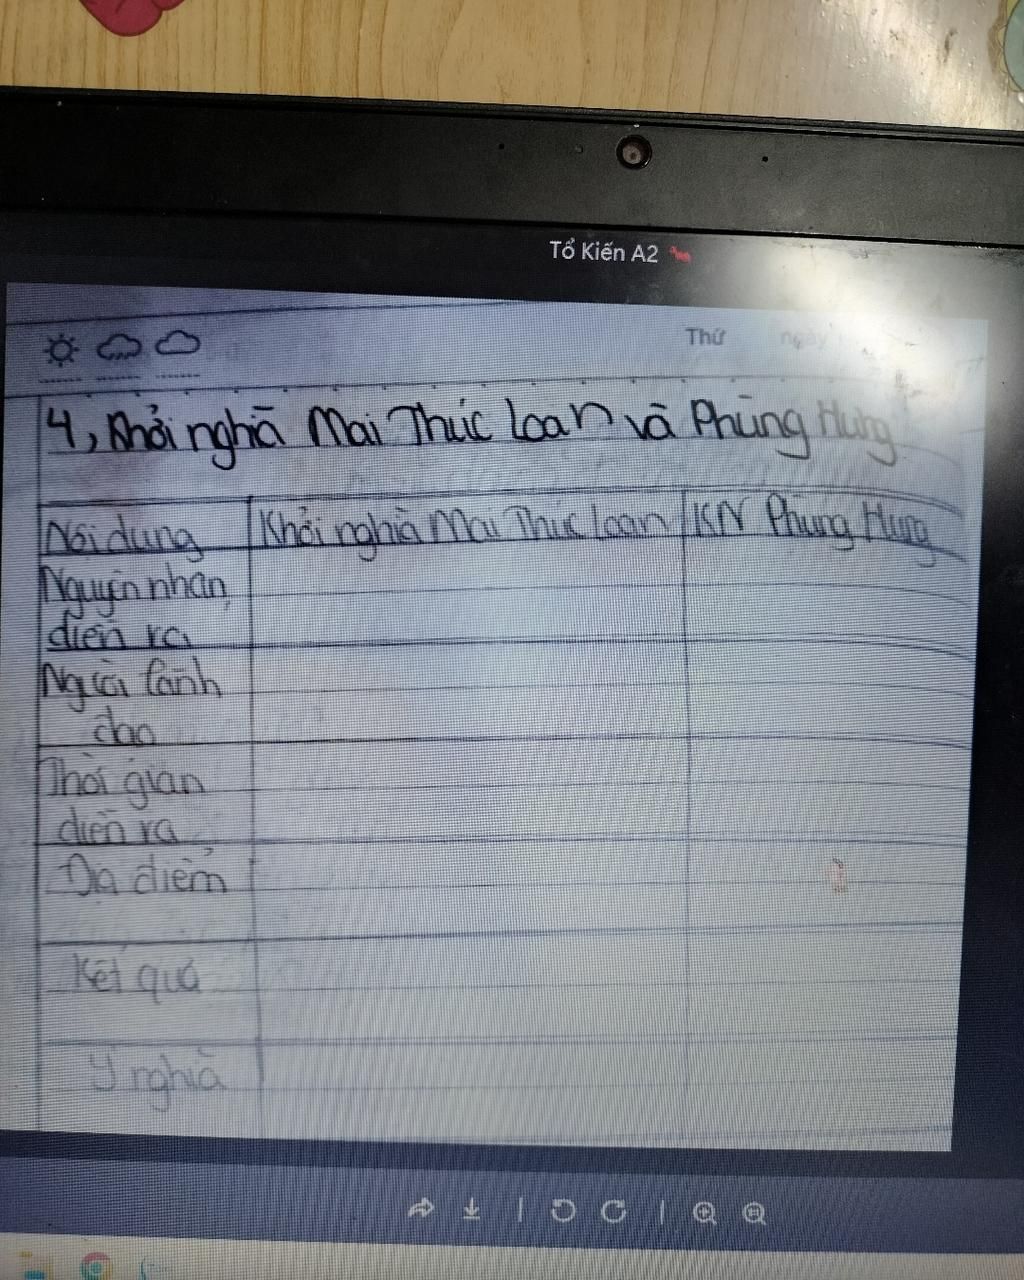 Tổ Kiến A2
Thứ ngày
4, Khởi nghĩa Mai Thúc Loan và Phùng Hưng
Nội dung Khởi nghĩa Mai Thúc Loan KN Phùng Hưng
Nguyên nhân
diễn ra
Người lãnh
đạo
Thời gian
diễn ra
Địa điểm
Kết quả
Ý nghĩa